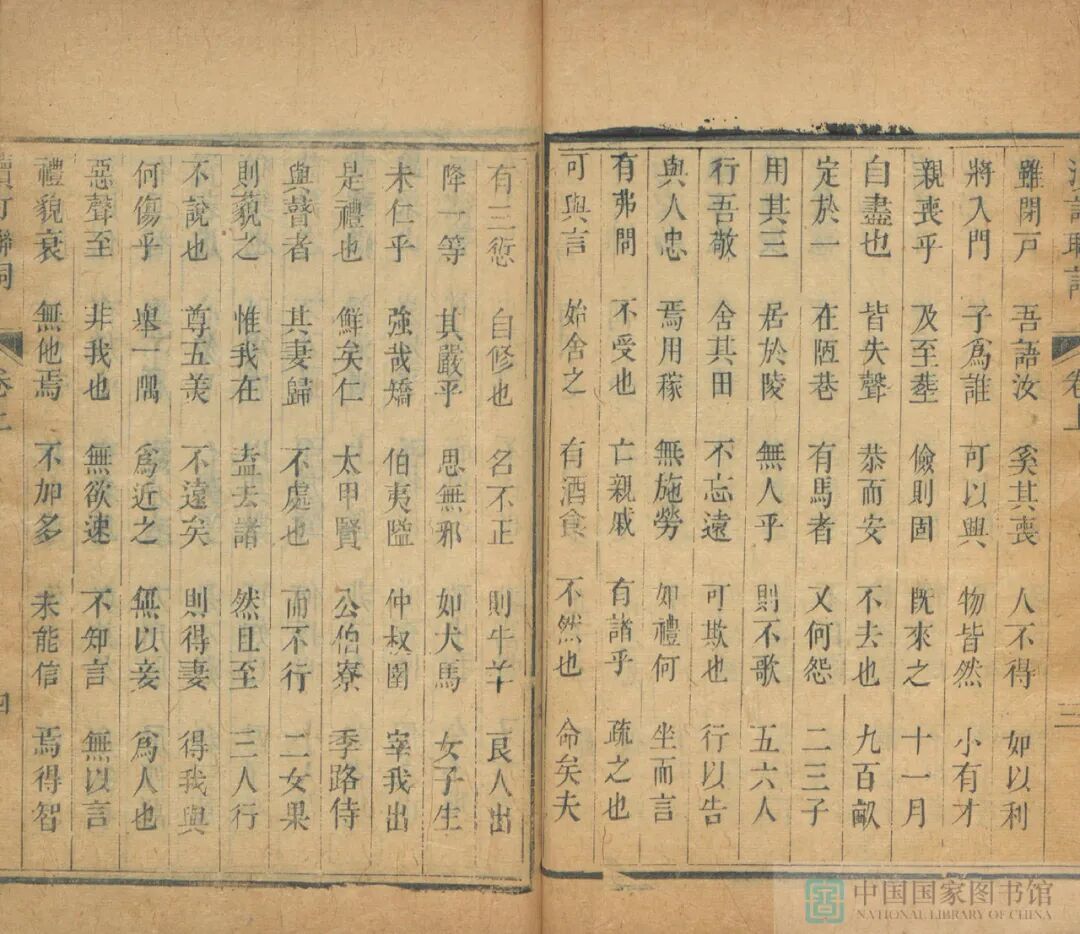 雖閉戸 吾語汝 奚其喪 人不得 如以利
將入門 子爲誰 可以興 物皆然 小有才
親喪乎 及至塟 儉則固 既來之 十一月
自盡也 皆失聲 恭而安 不去也 九百畝
定於一 在陋巷 有馬者 又何怨 二三子
用其三 居於陵 無人乎 則不歌 五六人
行吾敬 舍其田 不忘遠 可欺也 行以告
與人忠 焉用稼 無施勞 如禮何 坐而言
有弗問 不受也 亡親戚 有諸乎 疏之也
可與言 始舍之 有酒食 不然也 命矣夫
卷上
三
有三愆 自修也 名不正 則牛羊 良人出
降一等 其嚴乎 思無邪 如犬馬 女子生
未仁乎 強哉矯 伯夷隘 仲叔圉 宰我出
是禮也 鮮矣仁 太甲賢 公伯寮 季路侍
與瞽者 其妻歸 不處也 而不行 二女果
則藐之 惟我在 盍去諸 然且至 三人行
不說也 尊五美 不遠矣 則得妻 得我與
何傷乎 舉一隅 爲近之 無以妾 爲人也
惡聲至 非我也 無欲速 不知言 無以言
禮貌衰 無他焉 不加多 未能信 焉得智
卷上
四
中国国家图书馆
NATIONAL LIBRARY OF CHINA